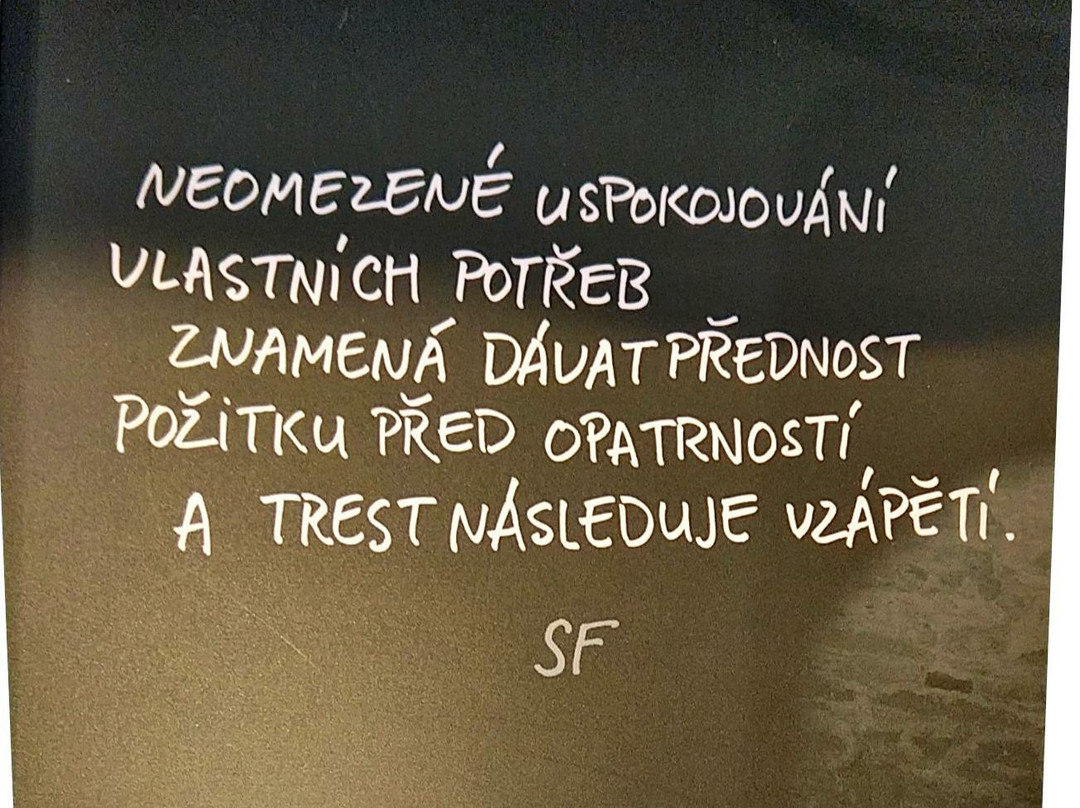 NEOMEZENÉ USPOKOJOVÁNÍ
VLASTNÍCH POTŘEB
ZNAMENÁ DÁVAT PŘEDNOST
POŽITKU PŘED OPATRNOSTÍ
A TREST NÁSLEDUJE VZÁPĚTÍ.
SF